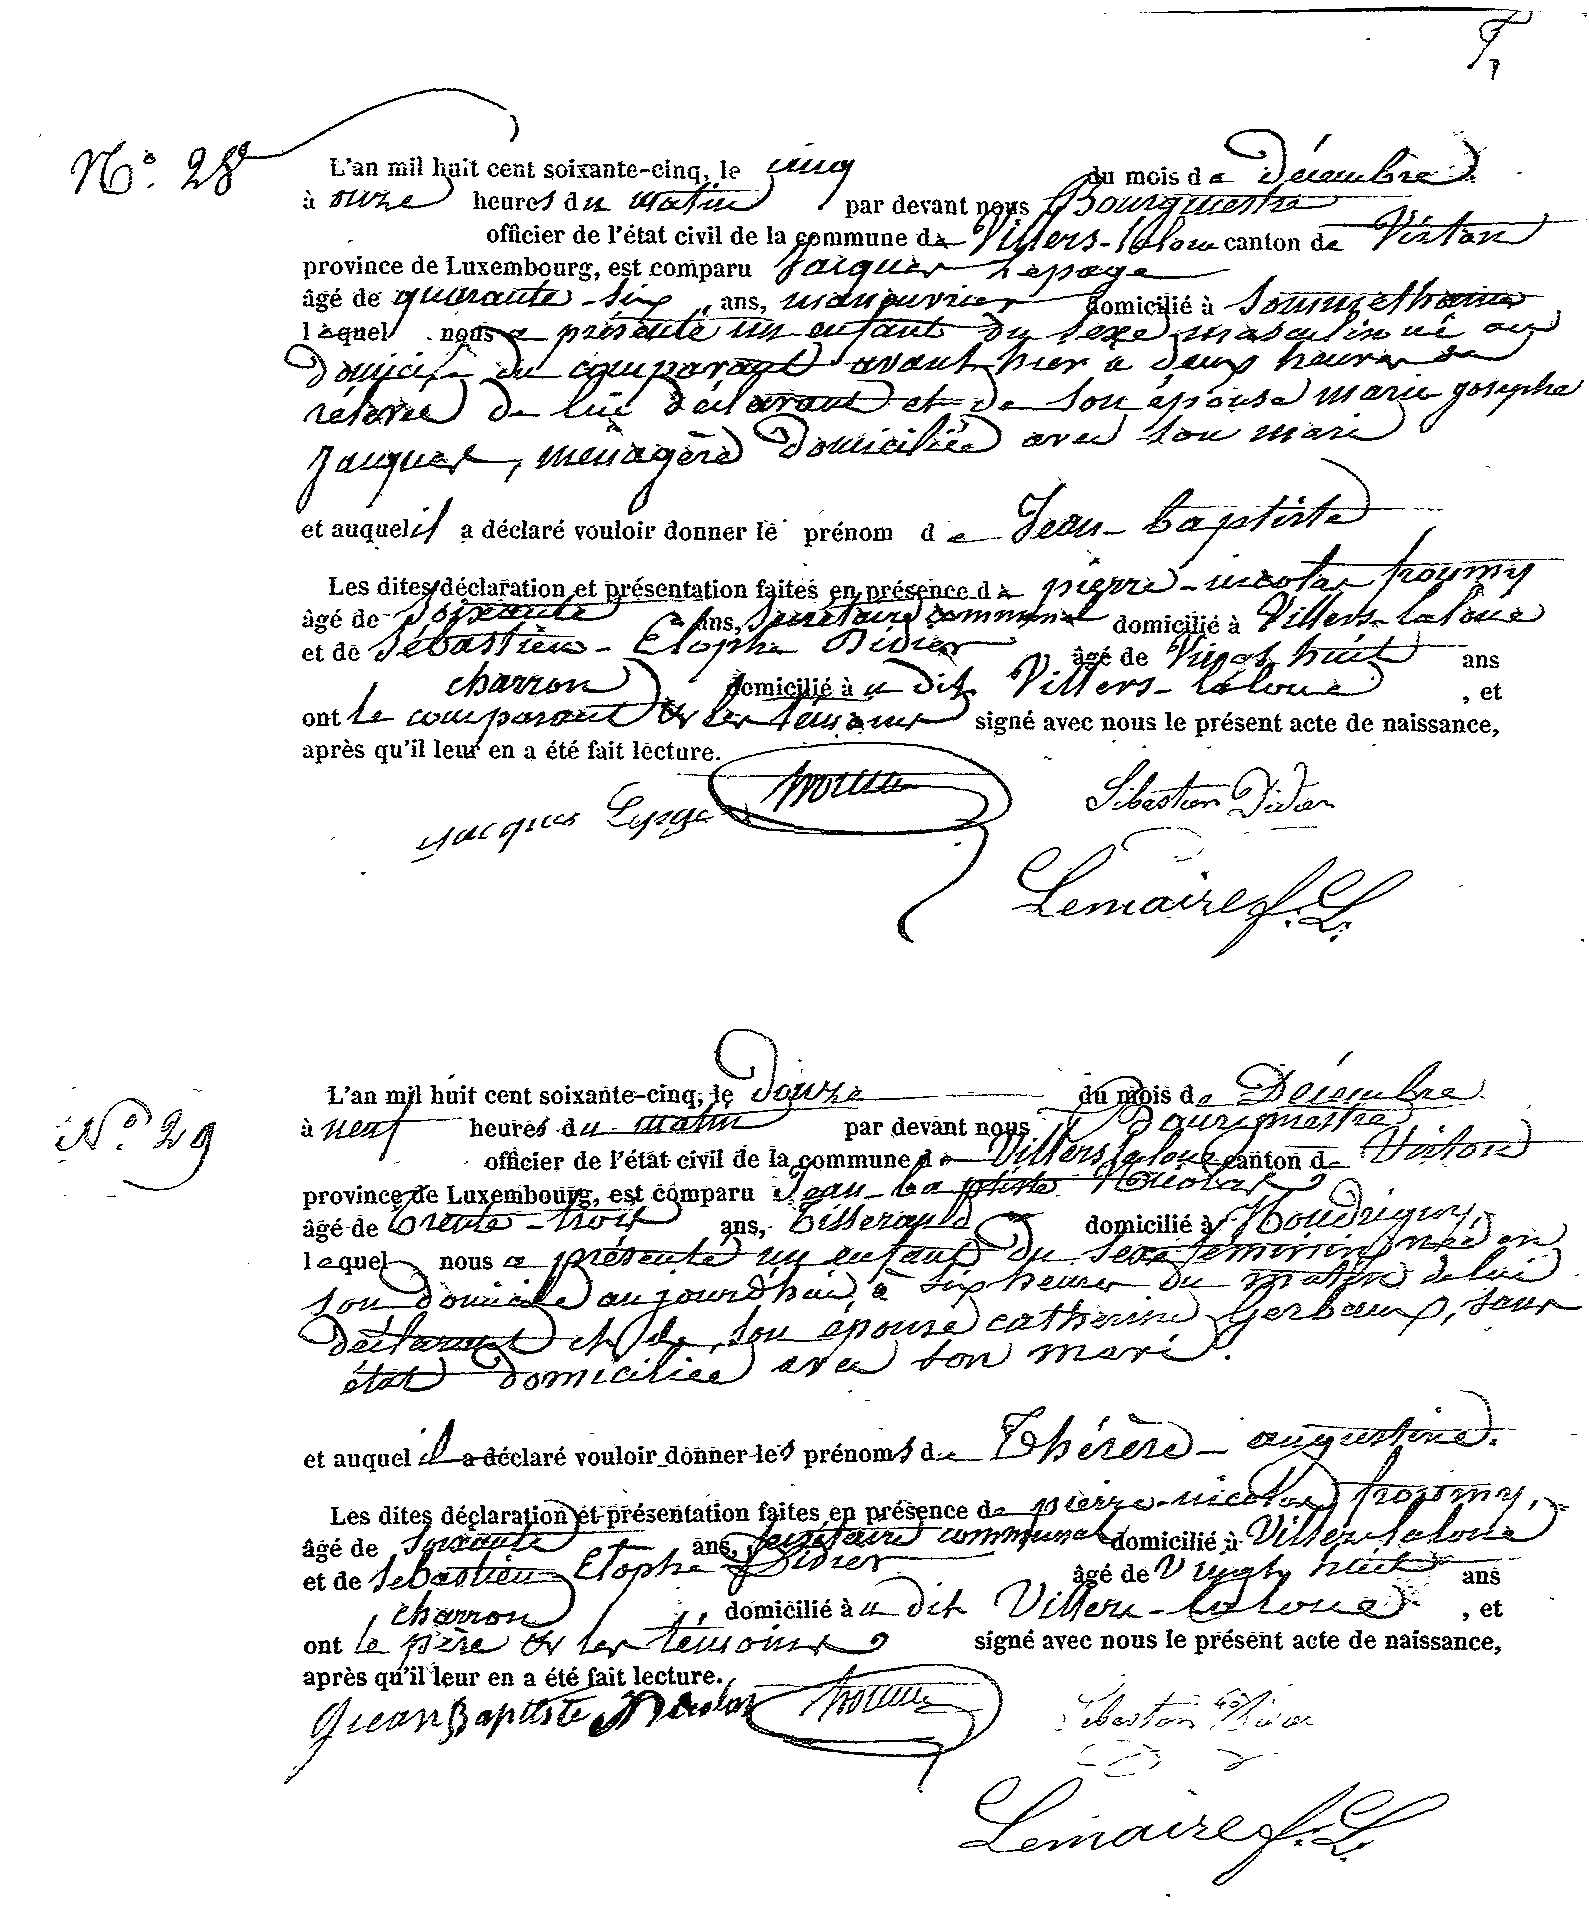 N.° 28
L'an mil huit cent soixante-cinq, le cinq du mois de Décembre
à onze heures du matin par devant nous Bourgmestre
officier de l'état civil de la commune de Villers-laloue canton de Virton
province de Luxembourg, est comparu Jacques Lepage
âgé de quarante-six ans, manouvrier domicilié à Sommethonne
lequel nous a présenté un enfant du sexe masculin né au
domicile du comparant avant hier à deux heures de
rélevée de lui déclarant et de son épouse marie josephe
Jacques, ménagère domiciliée avec son mari
et auquel il a déclaré vouloir donner le prénom de Jean-baptiste
Les dites déclaration et présentation faites en présence de pierre-nicolas froumy
âgé de soixante ans, secrétaire communal domicilié à Villers-laloue
et de Sébastien-Etophe Didier âgé de Vingt huit ans
charron domicilié à u dit Villers-laloue , et
ont le comparant et les témoins signé avec nous le présent acte de naissance,
après qu'il leur en a été fait lecture.
Jacques Lepage Sébastien Didier
Lemaire f. L.
N.° 29
L'an mil huit cent soixante-cinq, le Douze du mois de Décembre
à neuf heures du matin par devant nous Bourgmestre
officier de l'état civil de la commune de Villers laloue canton de Virton
province de Luxembourg, est comparu Jean-baptiste Nicolas
âgé de trente-trois ans, tisserand domicilié à Houdrigny,
lequel nous a présenté un enfant du sexe féminin née en
son domicile aujourd'hui, à six heures du matin de lui
déclarant et de son épouse catherine Gerbaux, sans
état domiciliée avec son mari.
et auquel il a déclaré vouloir donner les prénoms de Thérèse-augustine.
Les dites déclaration et présentation faites en présence de pierre-nicolas froumy,
âgé de soixante ans, secrétaire communal domicilié à Villers-laloue
et de Sébastien Etophe Didier âgé de Vingt huit ans
charron domicilié à u dit Villers-laloue , et
ont le père et les témoins signé avec nous le présent acte de naissance,
après qu'il leur en a été fait lecture.
Jean Baptiste Nicolas Sébastien Didier
Lemaire f. L.